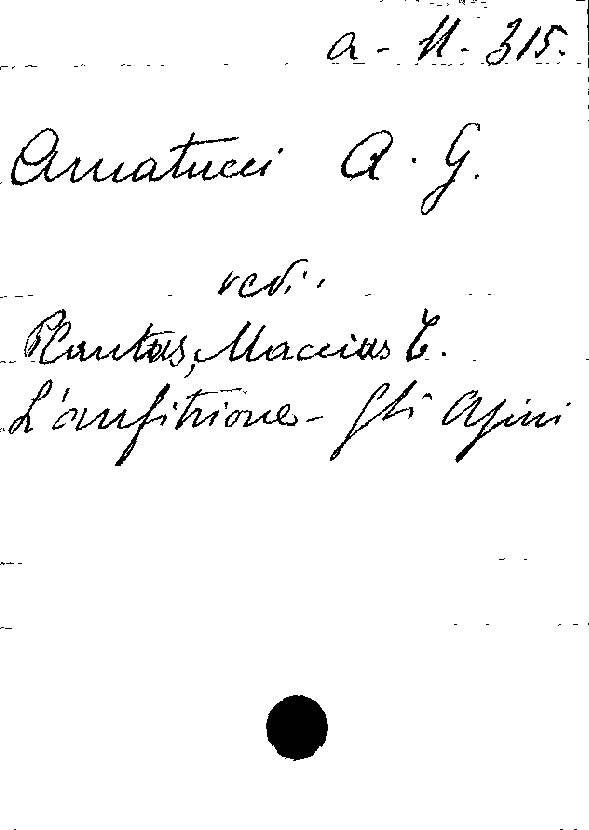 a - 11 - 315.
Amatucci A. G.
vedi:
Plautus, Maccius T.
L'anfitrione - Gli Asini